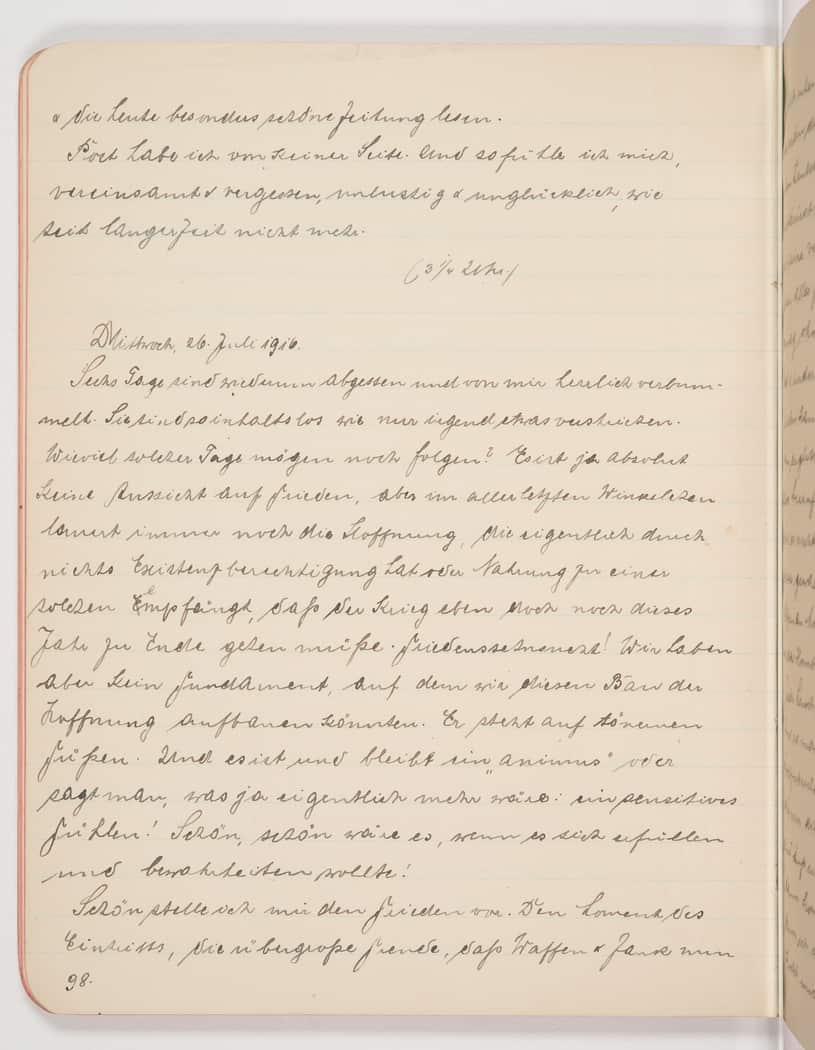 & die heute besonders schöne Zeitung lesen.
Post habe ich von keiner Seite. Und so fühle ich mich,
vereinsamt & vergessen, unlustig & unglücklich, wie
seit langer Zeit nicht mehr.
(3 1/4 Uhr.)
Mittwoch, 26. Juli 1916.
Sechs Tage sind wiederum abgesessen und von mir herrlich verbum-
melt. Sie sind so inhaltslos wie nur irgend etwas verstrichen.
Wieviel solcher Tage mögen noch folgen? Es ist ja absolut
keine Aussicht auf Frieden, aber im allerletzten Winkelchen
lauert immer noch die Hoffnung, die eigentlich durch
nichts Existenzberechtigung hat oder Nahrung zu einer
solchen Empfängt, daß der Krieg eben doch noch dieses
Jahr zu Ende gehen müße. Friedenssehnsucht! Wir haben
aber kein Fundament, auf dem wir diesen Bau der
Hoffnung aufbauen könnten. Er steht auf tönernen
Füßen. Und es ist und bleibt ein „animus" oder
sagt man, was ja eigentlich mehr wäre: ein sensitives
Fühlen! Schön, schön wäre es, wenn es sich erfüllen
und bewahrheiten wollte!
Schön stelle ich mir den Frieden vor. Den Moment des
Eintritts, die übergroße Freude, daß Waffen & Zank nun
98.